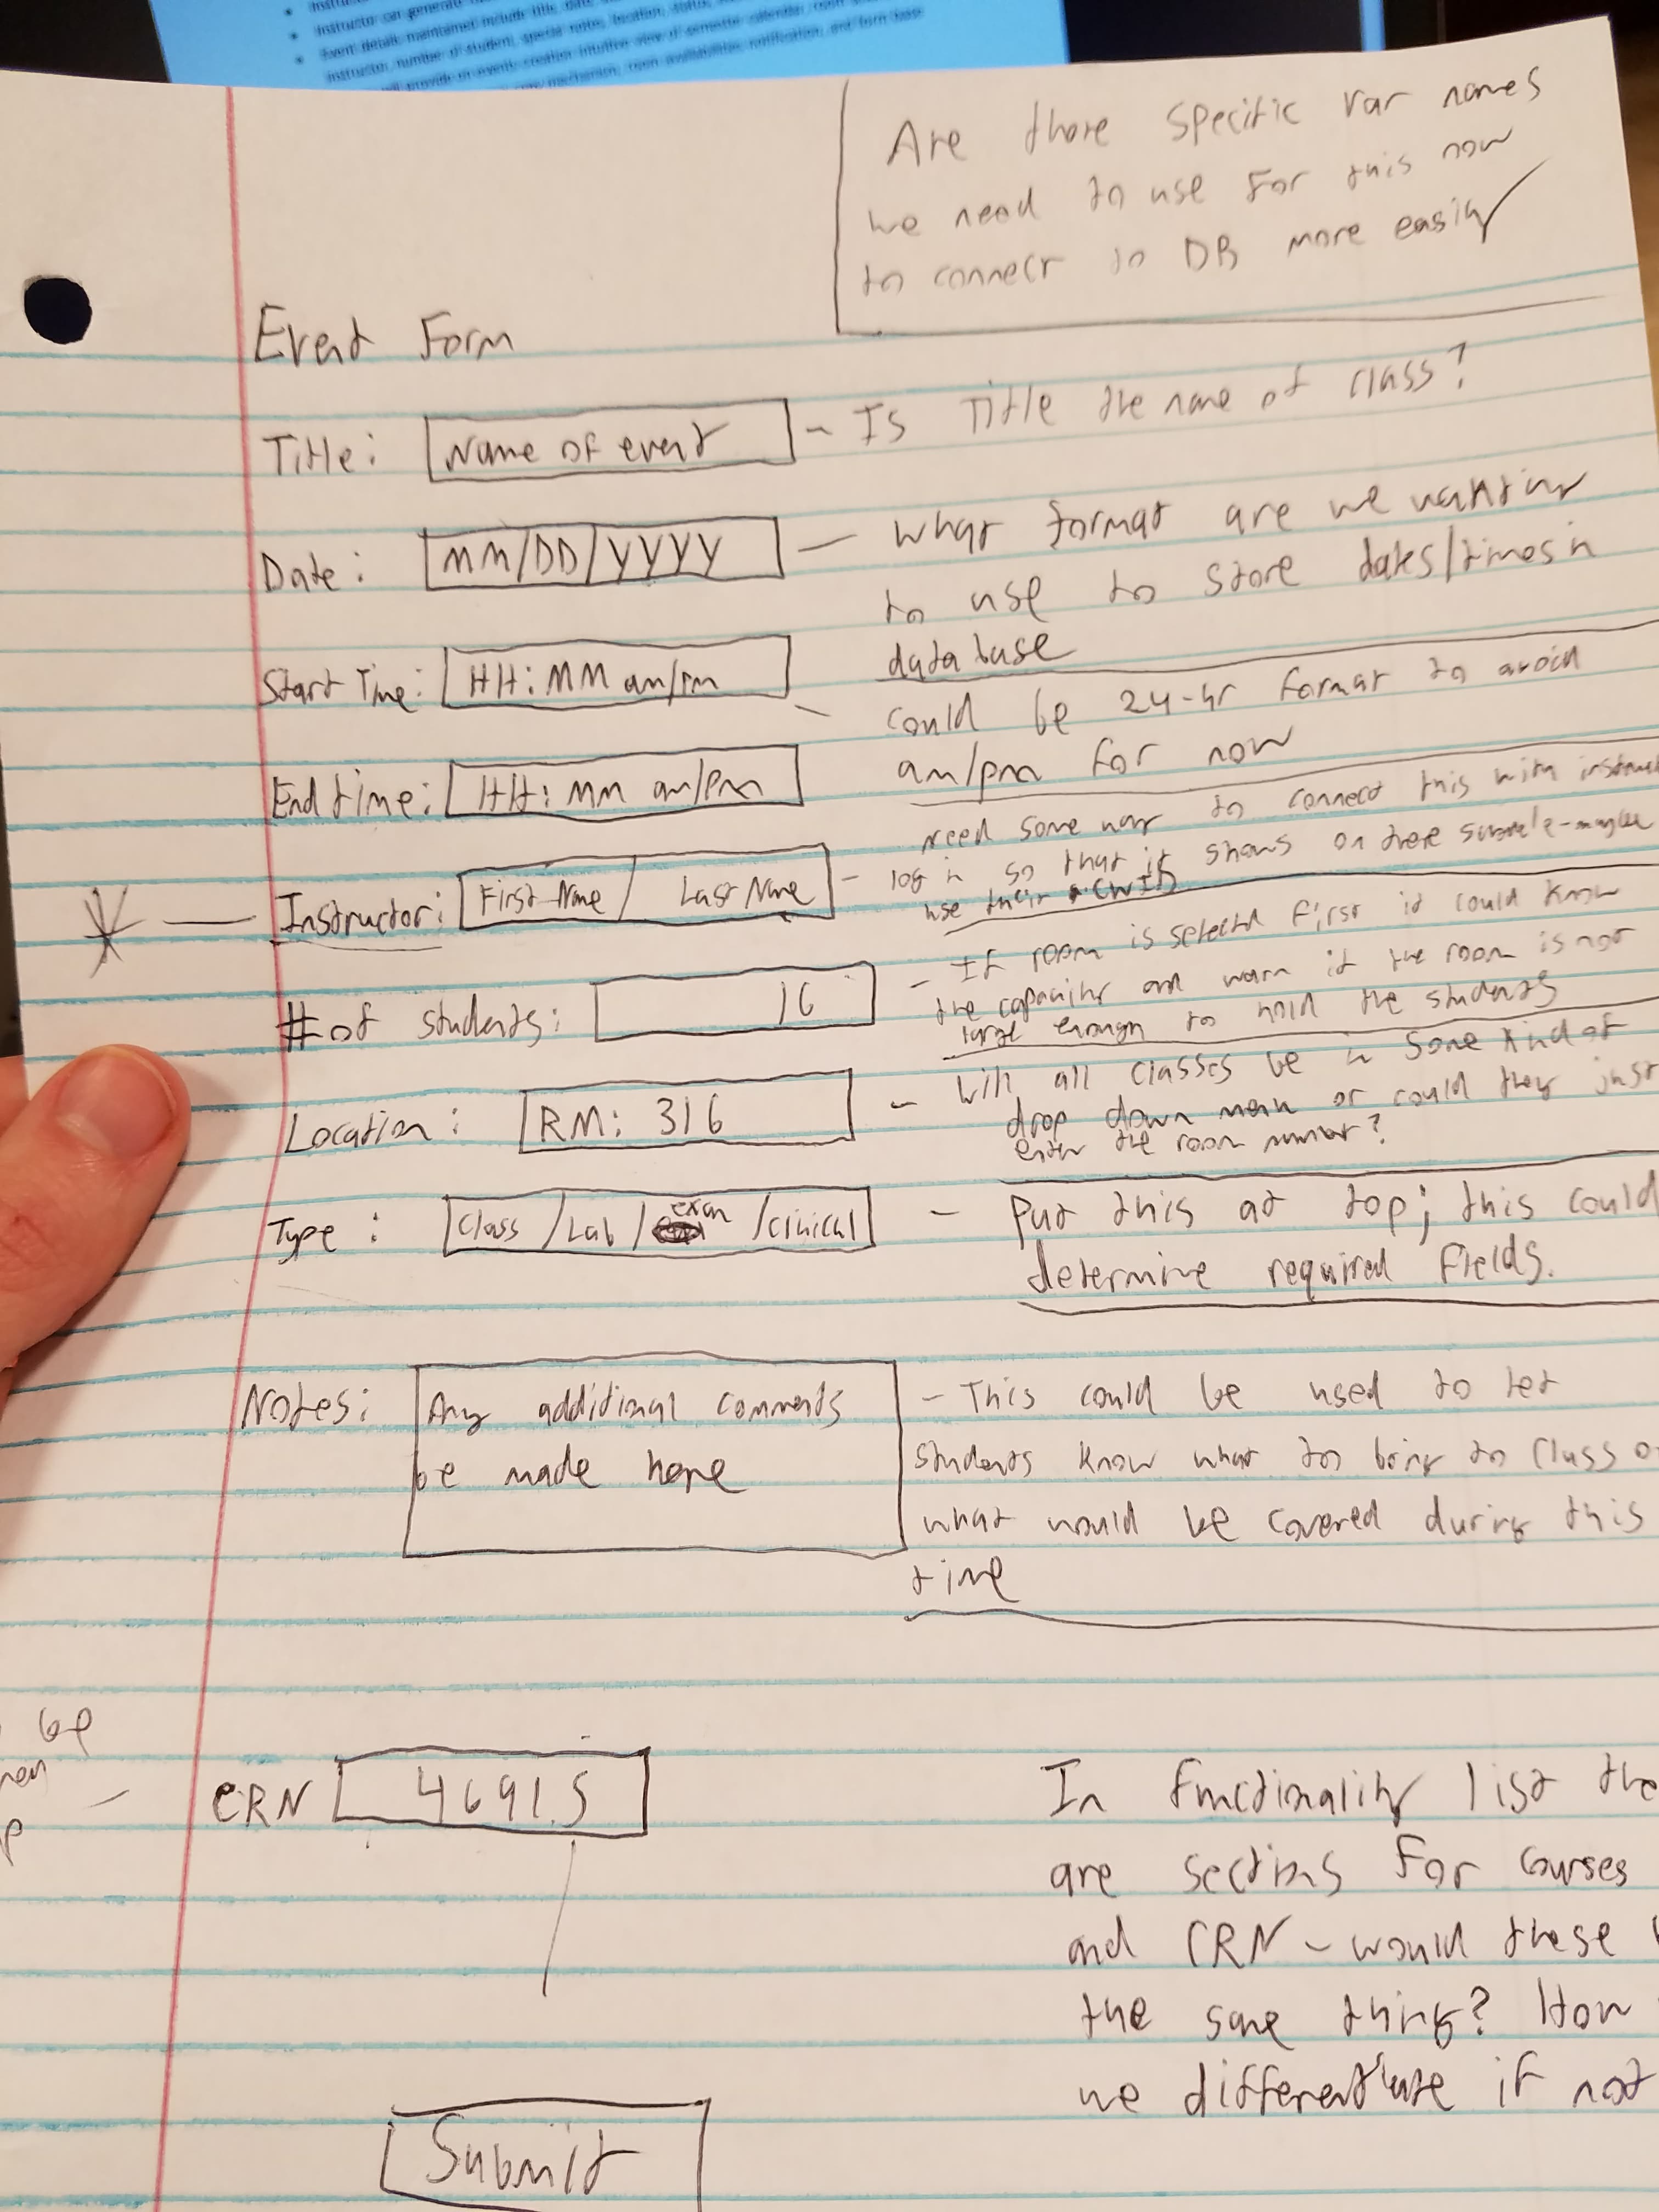 Instructor can generate
Event details maintained include title, date,
instructor, number of student, special notes, location, status,
provide an events creation intuitive view of semester calendar, room
mechanism, room availabilities, notification, and form base
Are there specific var names
we need to use for this now
to connect to DB more easily
Event Form
Title: Name of event - Is Title the name of class?
Date: MM/DD/YYYY - What format are we wanting
to use to store dates/times in
database
Start Time: HH:MM am/pm
- could be 24-hr format to avoid
am/pm for now
End time: HH:MM am/pm
need some way to connect this with
Instructor: First Name / Last Name - log in so that it shows on there
use their
# of students: 16 - If room is selected first it could know
the capacity and warn if the room is not
large enough to hold the students
Location: RM: 316 - Will all classes be in some kind of
drop down menu or could they just
enter the room number?
Type: Class / Lab / exam / clinical - Put this at top; this could
determine required fields.
Notes: Any additional comments
be made here
- This could be used to let
students know what to bring to class
what would be covered during this
time
be
CRN 46915
In functionality list the
are sections for courses
and CRN - would these
the same thing? How
we differentiate if not
Submit